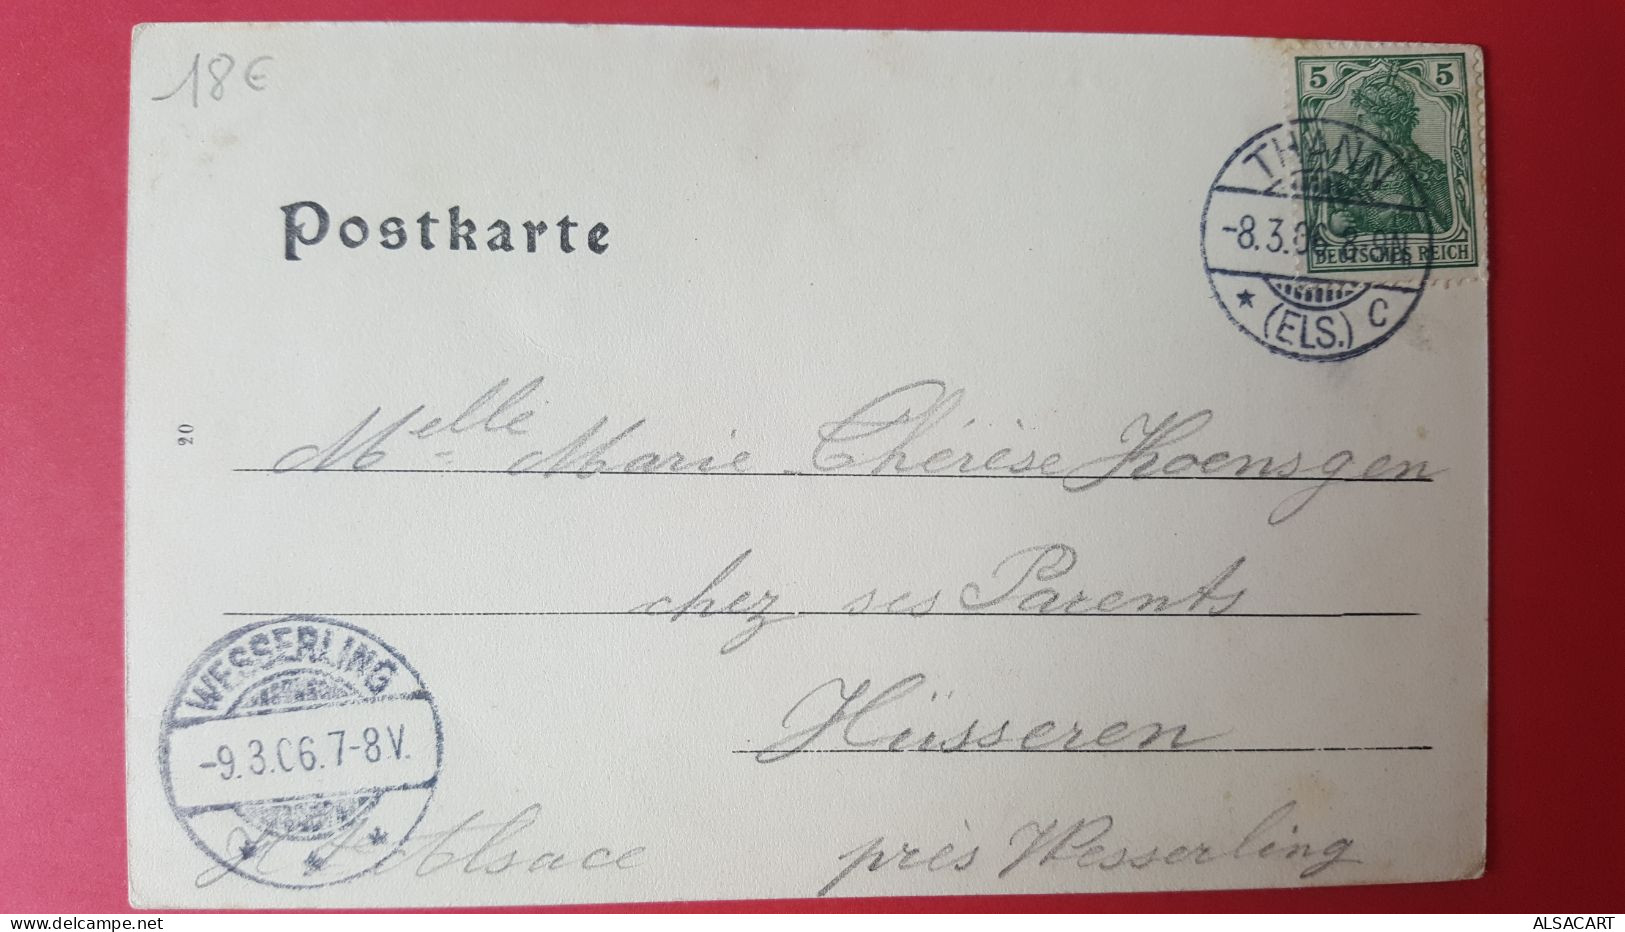 18€
5 5
DEUTSCHES REICH
THANN
-8.3.06. 8-9N.
* (ELS.) C
Postkarte
20
Melle Marie Thérèse Koensgen
chez ses Parents
Hüsseren
WESSERLING
-9.3.06.7-8V.
* * *
Hte Alsace près Wesserling
ALSACART